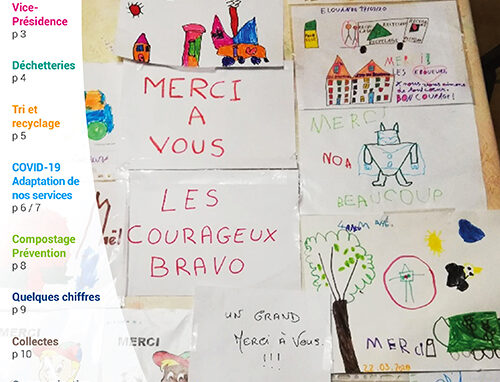 Vice-
Présidence
p 3
Déchetteries
p 4
Tri et
recyclage
p 5
COVID-19
Adaptation de
nos services
p 6 / 7
Compostage
Prévention
p 8
Quelques chiffres
p 9
Collectes
p 10
MERCI
A
VOUS
LES
COURAGEUX
BRAVO
UN GRAND
MERCI à VOUS.
!!!
RECYCLAGE
MERCI
LES
BON COURAGE!
MERCI
NOA
BEAUCOUP
MERCI
22.03.2020
MERCI